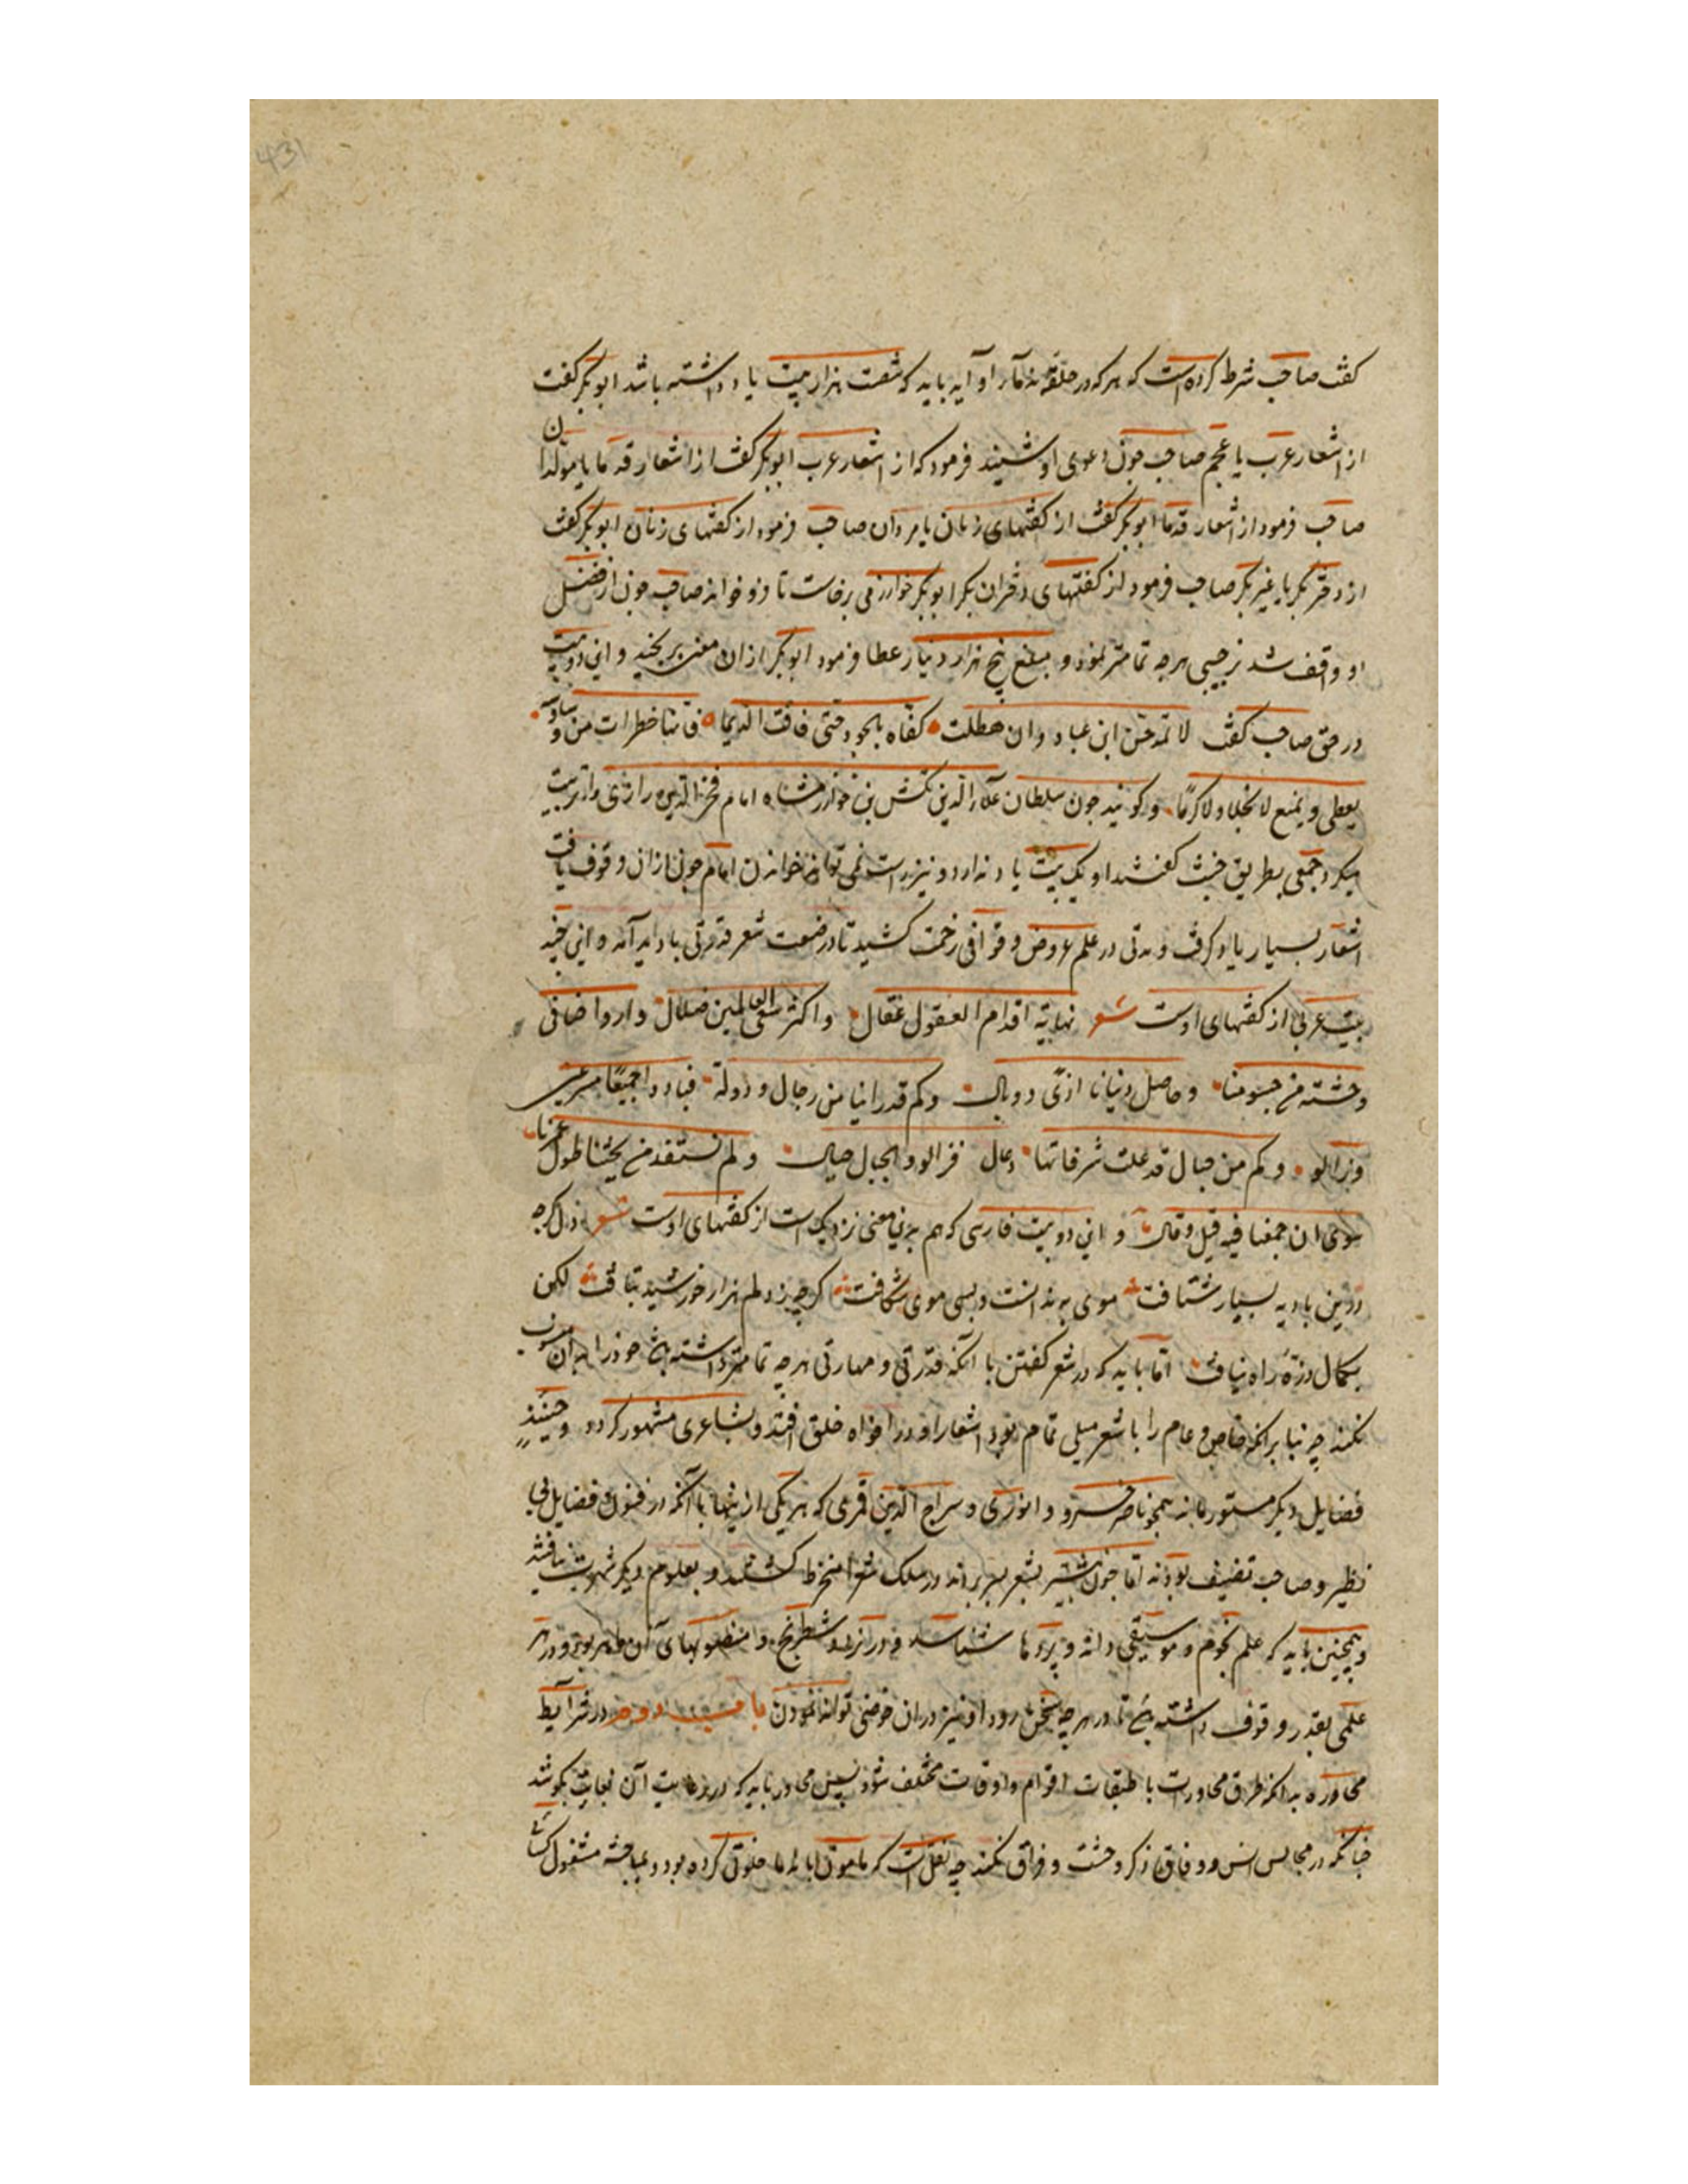 431
کفت صاحب شرط کرده است که هر که در حلقه ندماء او آید باید که شصت هزار بیت یاد داشته باشد ابوبکر کفت
از اشعار عرب یا عجم صاحب چون دعوی او شنید فرمود که از اشعار عرب ابوبکر کفت از اشعار قدما یا مولدان
صاحب فرمود از اشعار قدما ابوبکر کفت از کفتهای زنان یا مردان صاحب فرمود از کفتهای زنان ابوبکر کفت
از دختر بکر یا غیر بکر صاحب فرمود از کفتهای دختران بکر ابوبکر خوارزمی برخاست تا درو خواند صاحب چون از فضل
او واقف شد ترحیبی هرچه تمامتر نمود و مبلغ پنج هزار دینار عطا فرمود ابوبکر ازان معنی برنجید و این دو بیت
در حق صاحب کفت لا تمدحن ابن عباد وان هطلت کفاه بالجود حتی فاقت الدیما فانها خطرات من وساوسه
یعطی ویمنع لا بخلا ولا کرما و کویند چون سلطان علاء الدین تکش بن خوارزمشاه امام فخر الدین رازی را تربیت
میکرد جمعی بطریق خبث کفتند او یک بیت یاد ندارد و نیز راست نمی تواند خواندن امام چون ازان وقوف یافت
اشعار بسیار یاد کرفت و مدتی در علم عروض و قوافی زحمت کشید تا در صنعت شعر قدرتی بادید آمد و این چند
بیت عربی از کفتهای اوست شعر نهایة اقدام العقول عقال واکثر سعی العالمین ضلال وارواحنا فی
وحشة من جسومنا وحاصل دنیانا اذی ووبال وکم قد راینا من رجال ودولة فبادوا جمیعا مسرعین
وزالوا وکم من جبال قد علت شرفاتها رجال فزالوا والجبال جبال ولم نستفد من بحثنا طول عمرنا
سوی ان جمعنا فیه قیل وقال و این دو بیت فارسی که هم بدین معنی نزدیک است از کفتهای اوست شعر دل کرچه
درین بادیه بسیار شتافت موی بندانست و بسی موی شکافت کرچه ز دلم هزار خورشید بتافت لکن
بکمال ذره راه نیافت اما باید که در شعر کفتن با آنکه قدرتی و مهارتی هرچه تمامتر داشته باشد خود را بدان منسوب
نکند چه بنابر آنکه خاص و عام را با شعر میلی تمام بود اشعار او در افواه خلق افتد و بشاعری مشهور کردد و حینئذ
فضایل دیکر مستور ماند همچو ناصر خسرو و انوری و سراج الدین قمری که هر یکی ازینها با آنکه در فنون فضایل بی
نظیر و صاحب تصنیف بودند اما چون بیشتر بشعر بسر بردند در سلک شعرا منخرط کشتند و بعلوم دیکر شهرت نیافتند
و همچنین باید که علم نجوم و موسیقی داند و پردها شناسد و در نرد و شطرنج و منصوبهای آن ماهر بود و در هر
علمی بقدر وقوف داشته باشد تا در هرچه سخن رود او نیز دران خوضی تواند نمودن باب دوم در شرایط
محاوره بدانکه طرق محاورت با طبقات اقوام و اوقات مختلف شود پس محاور باید که در رعایت آن بغایت بکوشد
چنانکه در مجالس انس و وفاق ذکر وحشت و فراق نکند چه نقل است که مامون با ندما خلوتی کرده بود و بمباحثه مشغول کشته